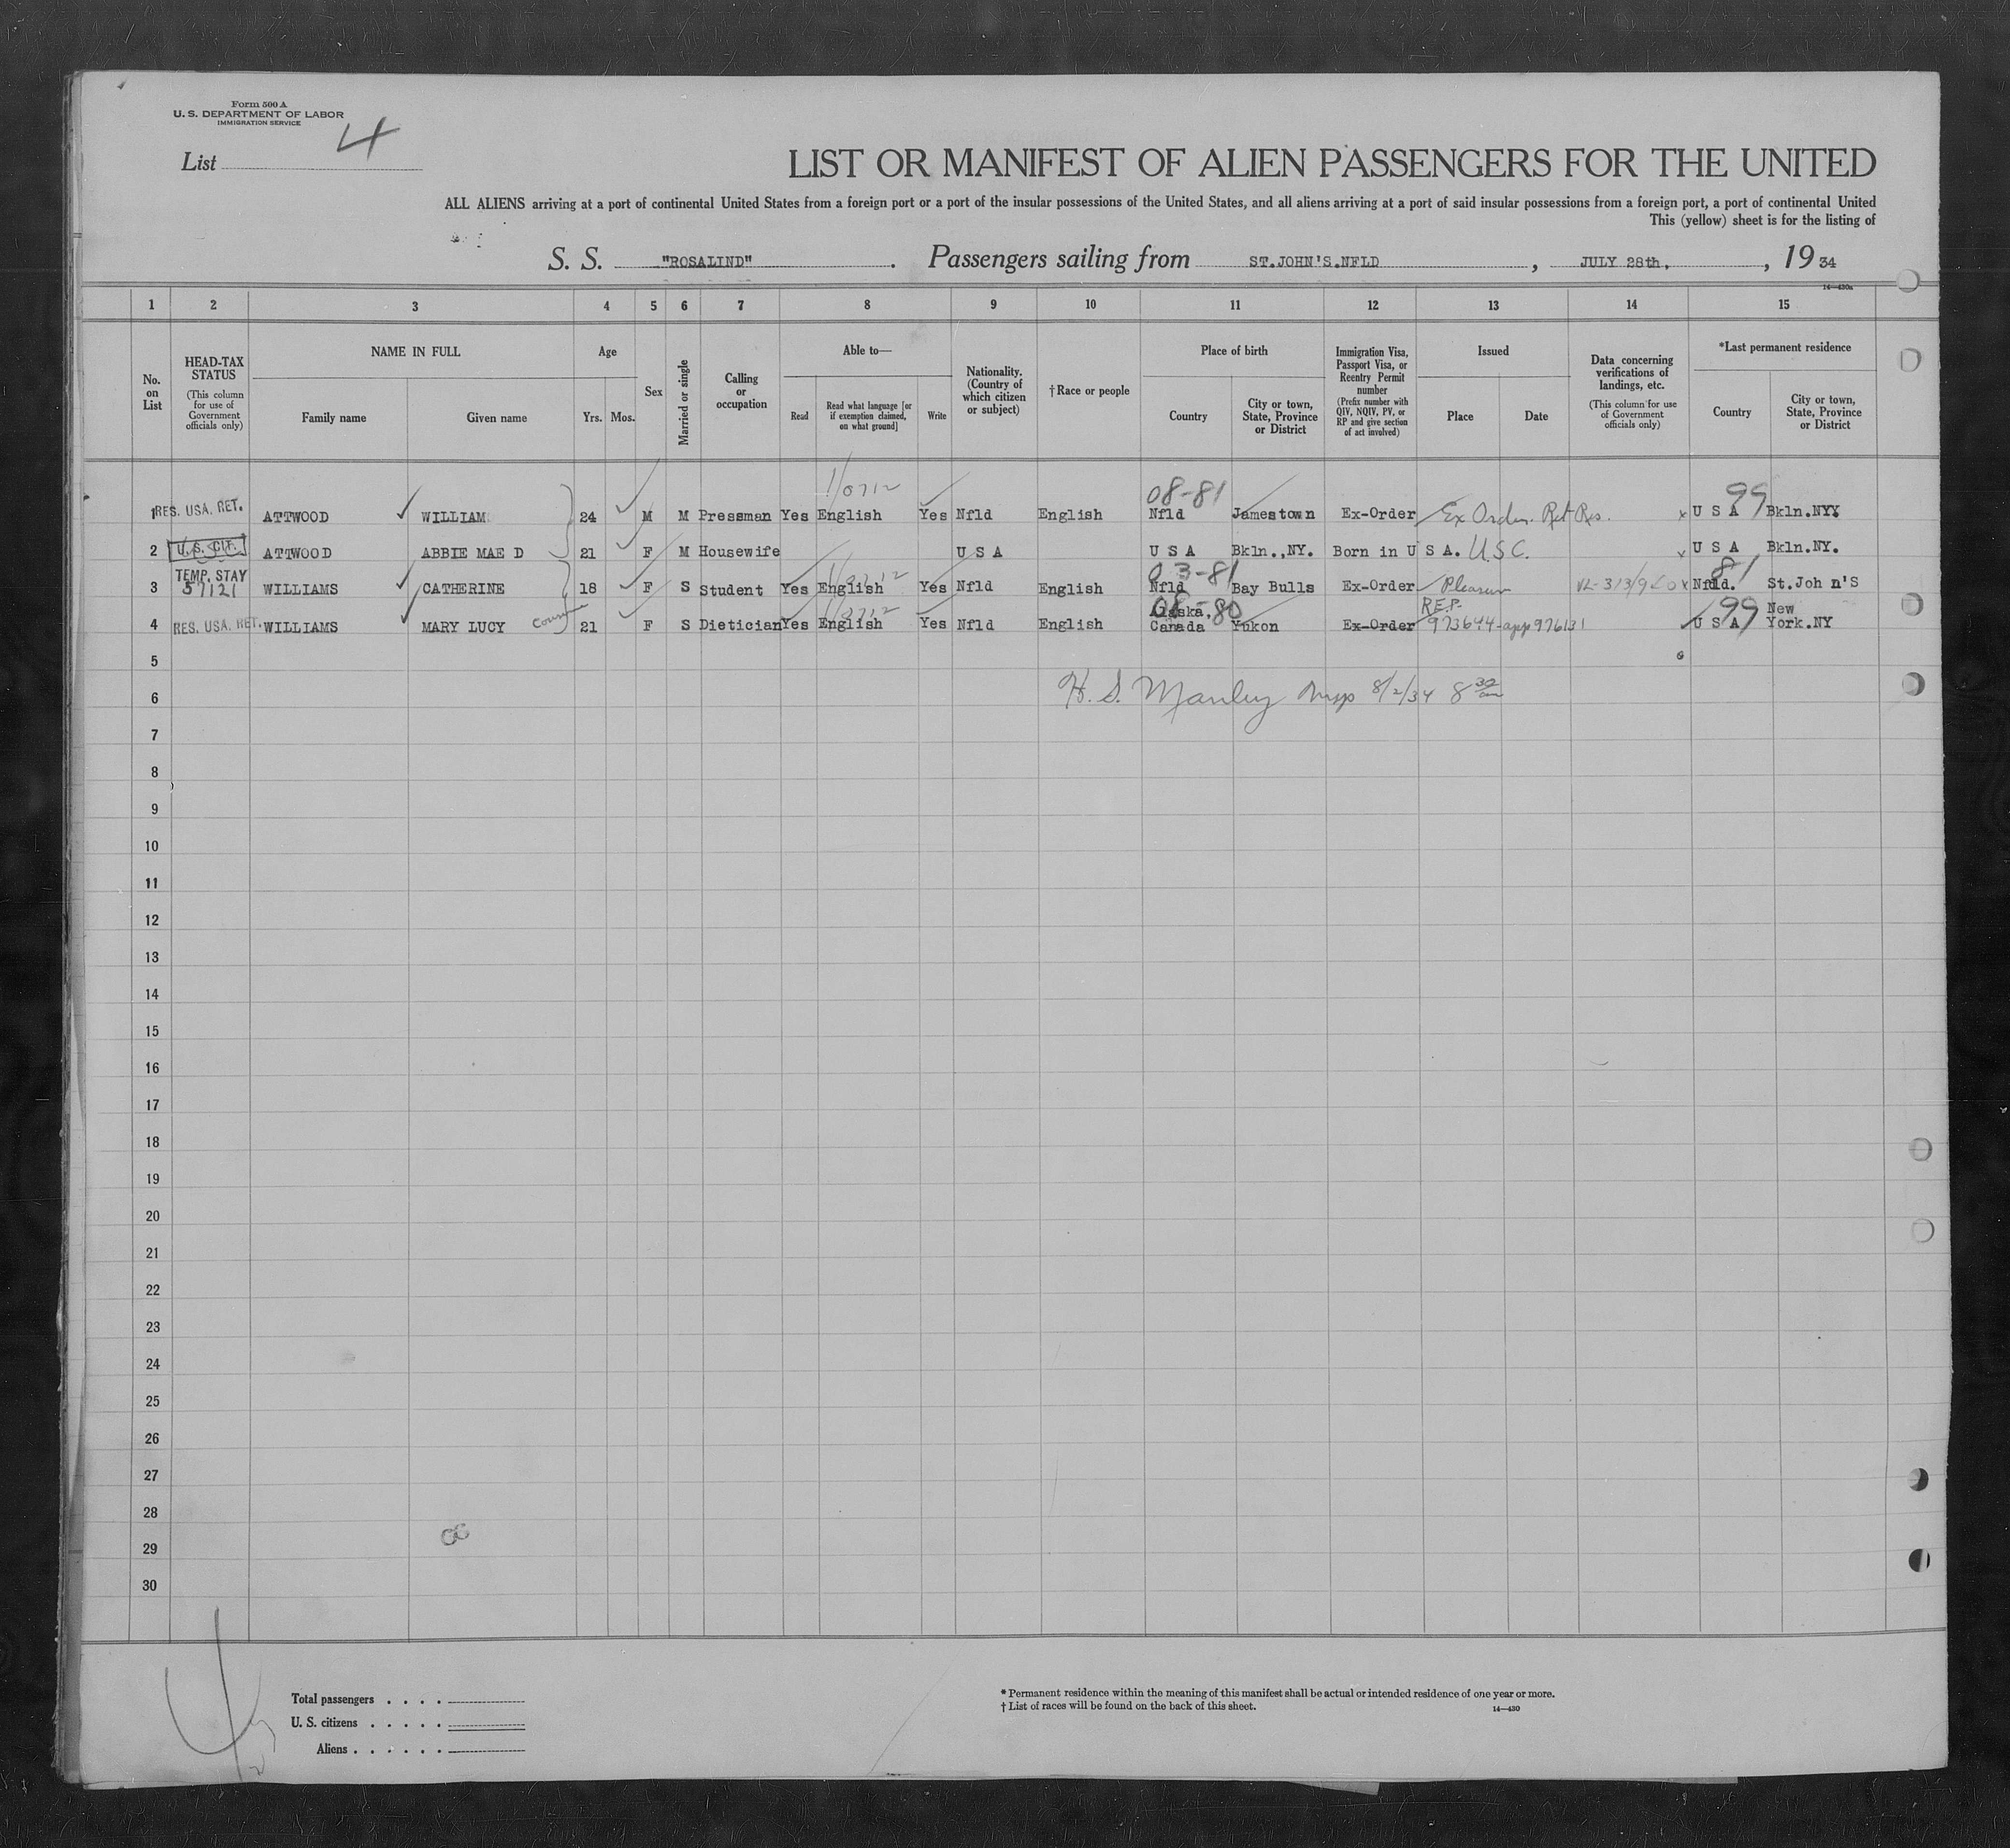 Form 500 A
U. S. DEPARTMENT OF LABOR
IMMIGRATION SERVICE
List 4
LIST OR MANIFEST OF ALIEN PASSENGERS FOR THE UNITED
ALL ALIENS arriving at a port of continental United States from a foreign port or a port of the insular possessions of the United States, and all aliens arriving at a port of said insular possessions from a foreign port, a port of continental United
This (yellow) sheet is for the listing of
S. S. "ROSALIND". Passengers sailing from ST.JOHN'S.NFLD, JULY 28th, , 1934
14—430a
1 2 3 4 5 6 7 8 9 10 11 12 13 14 15
No. on List
HEAD-TAX STATUS
(This column for use of Government officials only)
NAME IN FULL
Family name
Given name
Age
Yrs. Mos.
Sex
Married or single
Calling or occupation
Able to—
Read
Read what language [or if exemption claimed, on what ground]
Write
Nationality. (Country of which citizen or subject)
†Race or people
Place of birth
Country
City or town, State, Province or District
Immigration Visa, Passport Visa, or Reentry Permit number
(Prefix number with QIV, NQIV, PV, or RP and give section of act involved)
Issued
Place
Date
Data concerning verifications of landings, etc.
(This column for use of Government officials only)
*Last permanent residence
Country
City or town, State, Province or District
1/0712 08-81 99
1 RES. USA. RET. ATTWOOD WILLIAM 24 M M Pressman Yes English Yes Nfld English Nfld Jamestown Ex-Order Ex Order. Ret Res. x U S A Bkln.NYY
2 U.S. CIT. ATTWOOD ABBIE MAE D 21 F M Housewife U S A U S A Bkln.,NY. Born in U S A. U.S.C. U S A Bkln.NY.
TEMP. STAY 03-81 81
3 57121 WILLIAMS CATHERINE 18 F S Student Yes English Yes Nfld English Nfld Bay Bulls Ex-Order Pleasure x Nfld. St.Joh n'S
1/0712 Alaska, 08-80 R.E.P. 99 New
4 RES. USA. RET. WILLIAMS MARY LUCY 21 F S Dietician Yes English Yes Nfld English Canada Yukon Ex-Order 973644-app 976131 U S A York.NY
5
6 H. S. Manley 8/2/34 8 30 am
7
8
9
10
11
12
13
14
15
16
17
18
19
20
21
22
23
24
25
26
27
28
29
30
Total passengers . . . .
U. S. citizens . . . . .
Aliens . . . . . .
* Permanent residence within the meaning of this manifest shall be actual or intended residence of one year or more.
† List of races will be found on the back of this sheet.
14—430